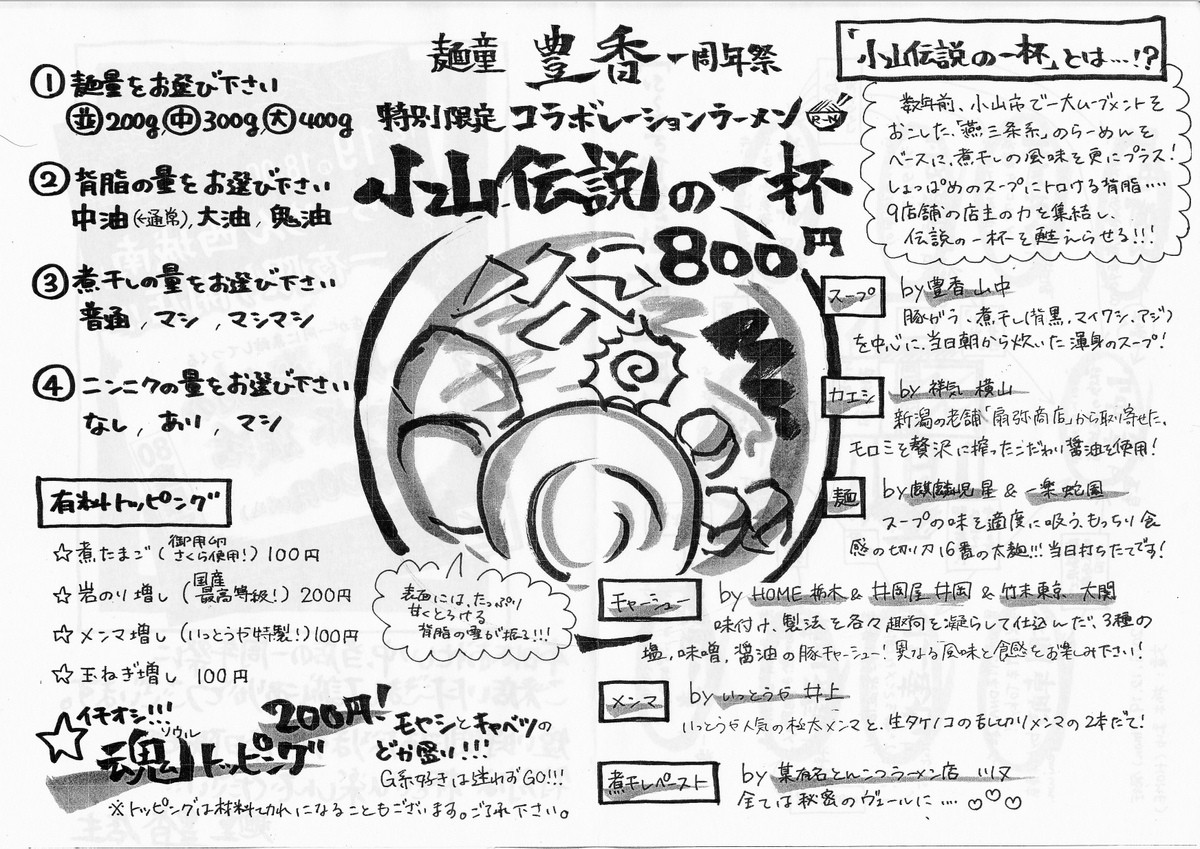 麺童 豊香 一周年祭
特別限定 コラボレーションラーメン
小山伝説の一杯
800円
① 麺量をお選び下さい
並200g, 中300g, 大400g
② 背脂の量をお選び下さい
中油(←通常), 大油, 鬼油
③ 煮干しの量をお選び下さい
普通, マシ, マシマシ
④ ニンニクの量をお選び下さい
なし, あり, マシ
有料トッピング
☆煮たまご(御用卵さくら使用!) 100円
☆岩のり増し(国産最高等級!) 200円
☆メンマ増し(いっとうや特製!) 100円
☆玉ねぎ増し 100円
☆イチオシ!!!
魂ソウルトッピング 200円!
モヤシとキャベツの
どか盛り!!!
G系好きは迷わずGO!!!
※トッピングは材料切れになることもございます。ご了承下さい。
表面には、たっぷり
甘くとろける
背脂の雪が振る!!!
「小山伝説の一杯」とは…!?
数年前、小山市で一大ムーブメントを
おこした、「燕三条系」のらーめんを
ベースに、煮干しの風味を更にプラス!
しょっぱめのスープにトロける背脂‥‥
9店舗の店主の力を集結し、
伝説の一杯を甦えらせる!!!
スープ by 豊香 山中
豚がら、煮干し(背黒,マイワシ,アジ)
を中心に、当日朝から炊いた渾身のスープ!
カエシ by 祥気 横山
新潟の老舗「扇弥商店」から取り寄せた、
モロミを贅沢に搾ったこだわり醤油を使用!
麺 by 麒麟児 星 & 一楽 蛇園
スープの味を適度に吸う、もっちり食
感の切り刃16番の太麺!!! 当日打ちたてです!
チャーシュー by HOME 栃木 & 井岡屋 井岡 & 竹末東京 大関
味付け、製法を各々趣向を凝らして仕込んだ、3種の
塩,味噌,醤油の豚チャーシュー! 異なる風味と食感をお楽しみ下さい!
メンマ by いっとうや 井上
いっとうや人気の極太メンマと、生タケノコの千切りメンマの2本だて!
煮干しペースト by 某有名とんこつラーメン店 川又
全ては秘密のヴェールに… ♡♡♡